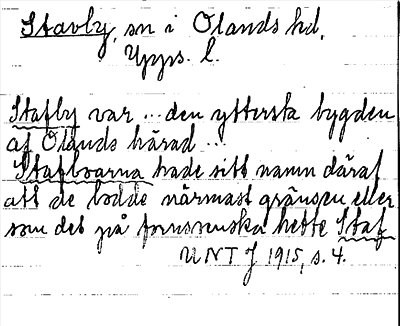 Stavby, sn i Olands hd,
Upps. l.
Stafby var ... den yttersta bygden
af Olands härad ...
Stafboarna hade sitt namn däraf
att de bodde närmast gränsen eller
som det på fornsvenska hette Staf
UNT J 1915, s. 4.